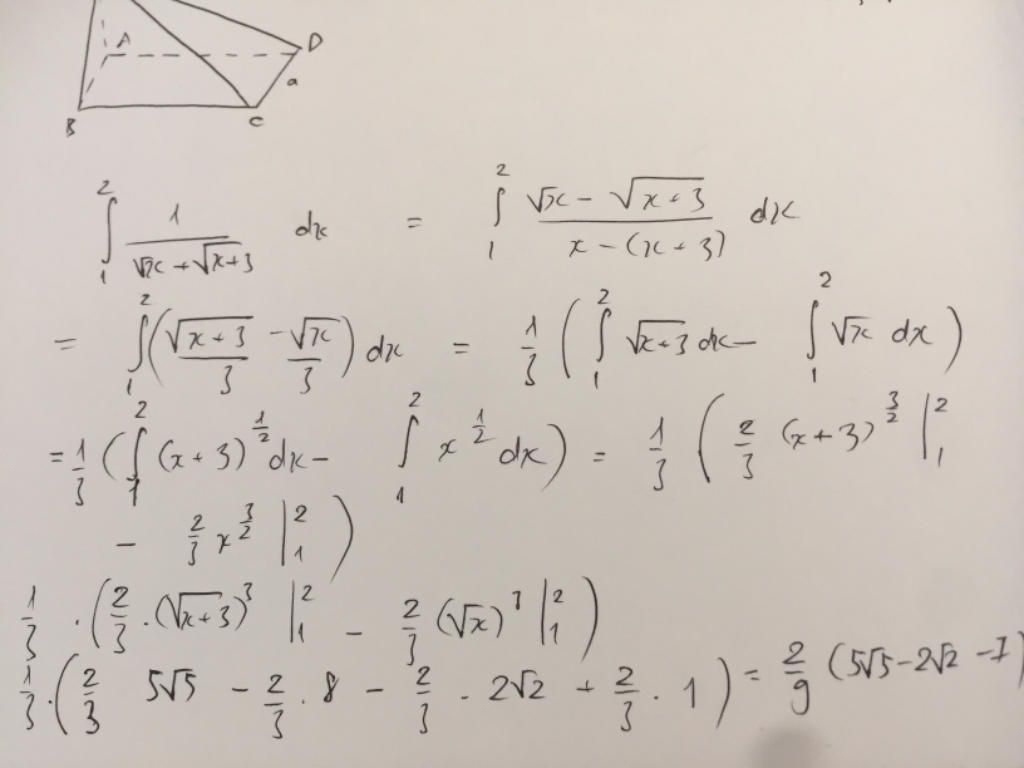 A
D
a
B
C
∫₁² 1/(√x + √(x+3)) dx = ∫₁² (√x − √(x+3))/(x − (x+3)) dx
= ∫₁² (√(x+3)/3 − √x/3) dx = 1/3 (∫₁² √(x+3) dx − ∫₁² √x dx)
= 1/3 (∫₁² (x+3)^(1/2) dx − ∫₁² x^(1/2) dx) = 1/3 (2/3 (x+3)^(3/2) |₁²
− 2/3 x^(3/2) |₁²)
1/3 · (2/3 · (√(x+3))³ |₁² − 2/3 (√x)³ |₁²)
1/3 · (2/3 5√5 − 2/3 · 8 − 2/3 · 2√2 + 2/3 · 1) = 2/9 (5√5 − 2√2 − 7)